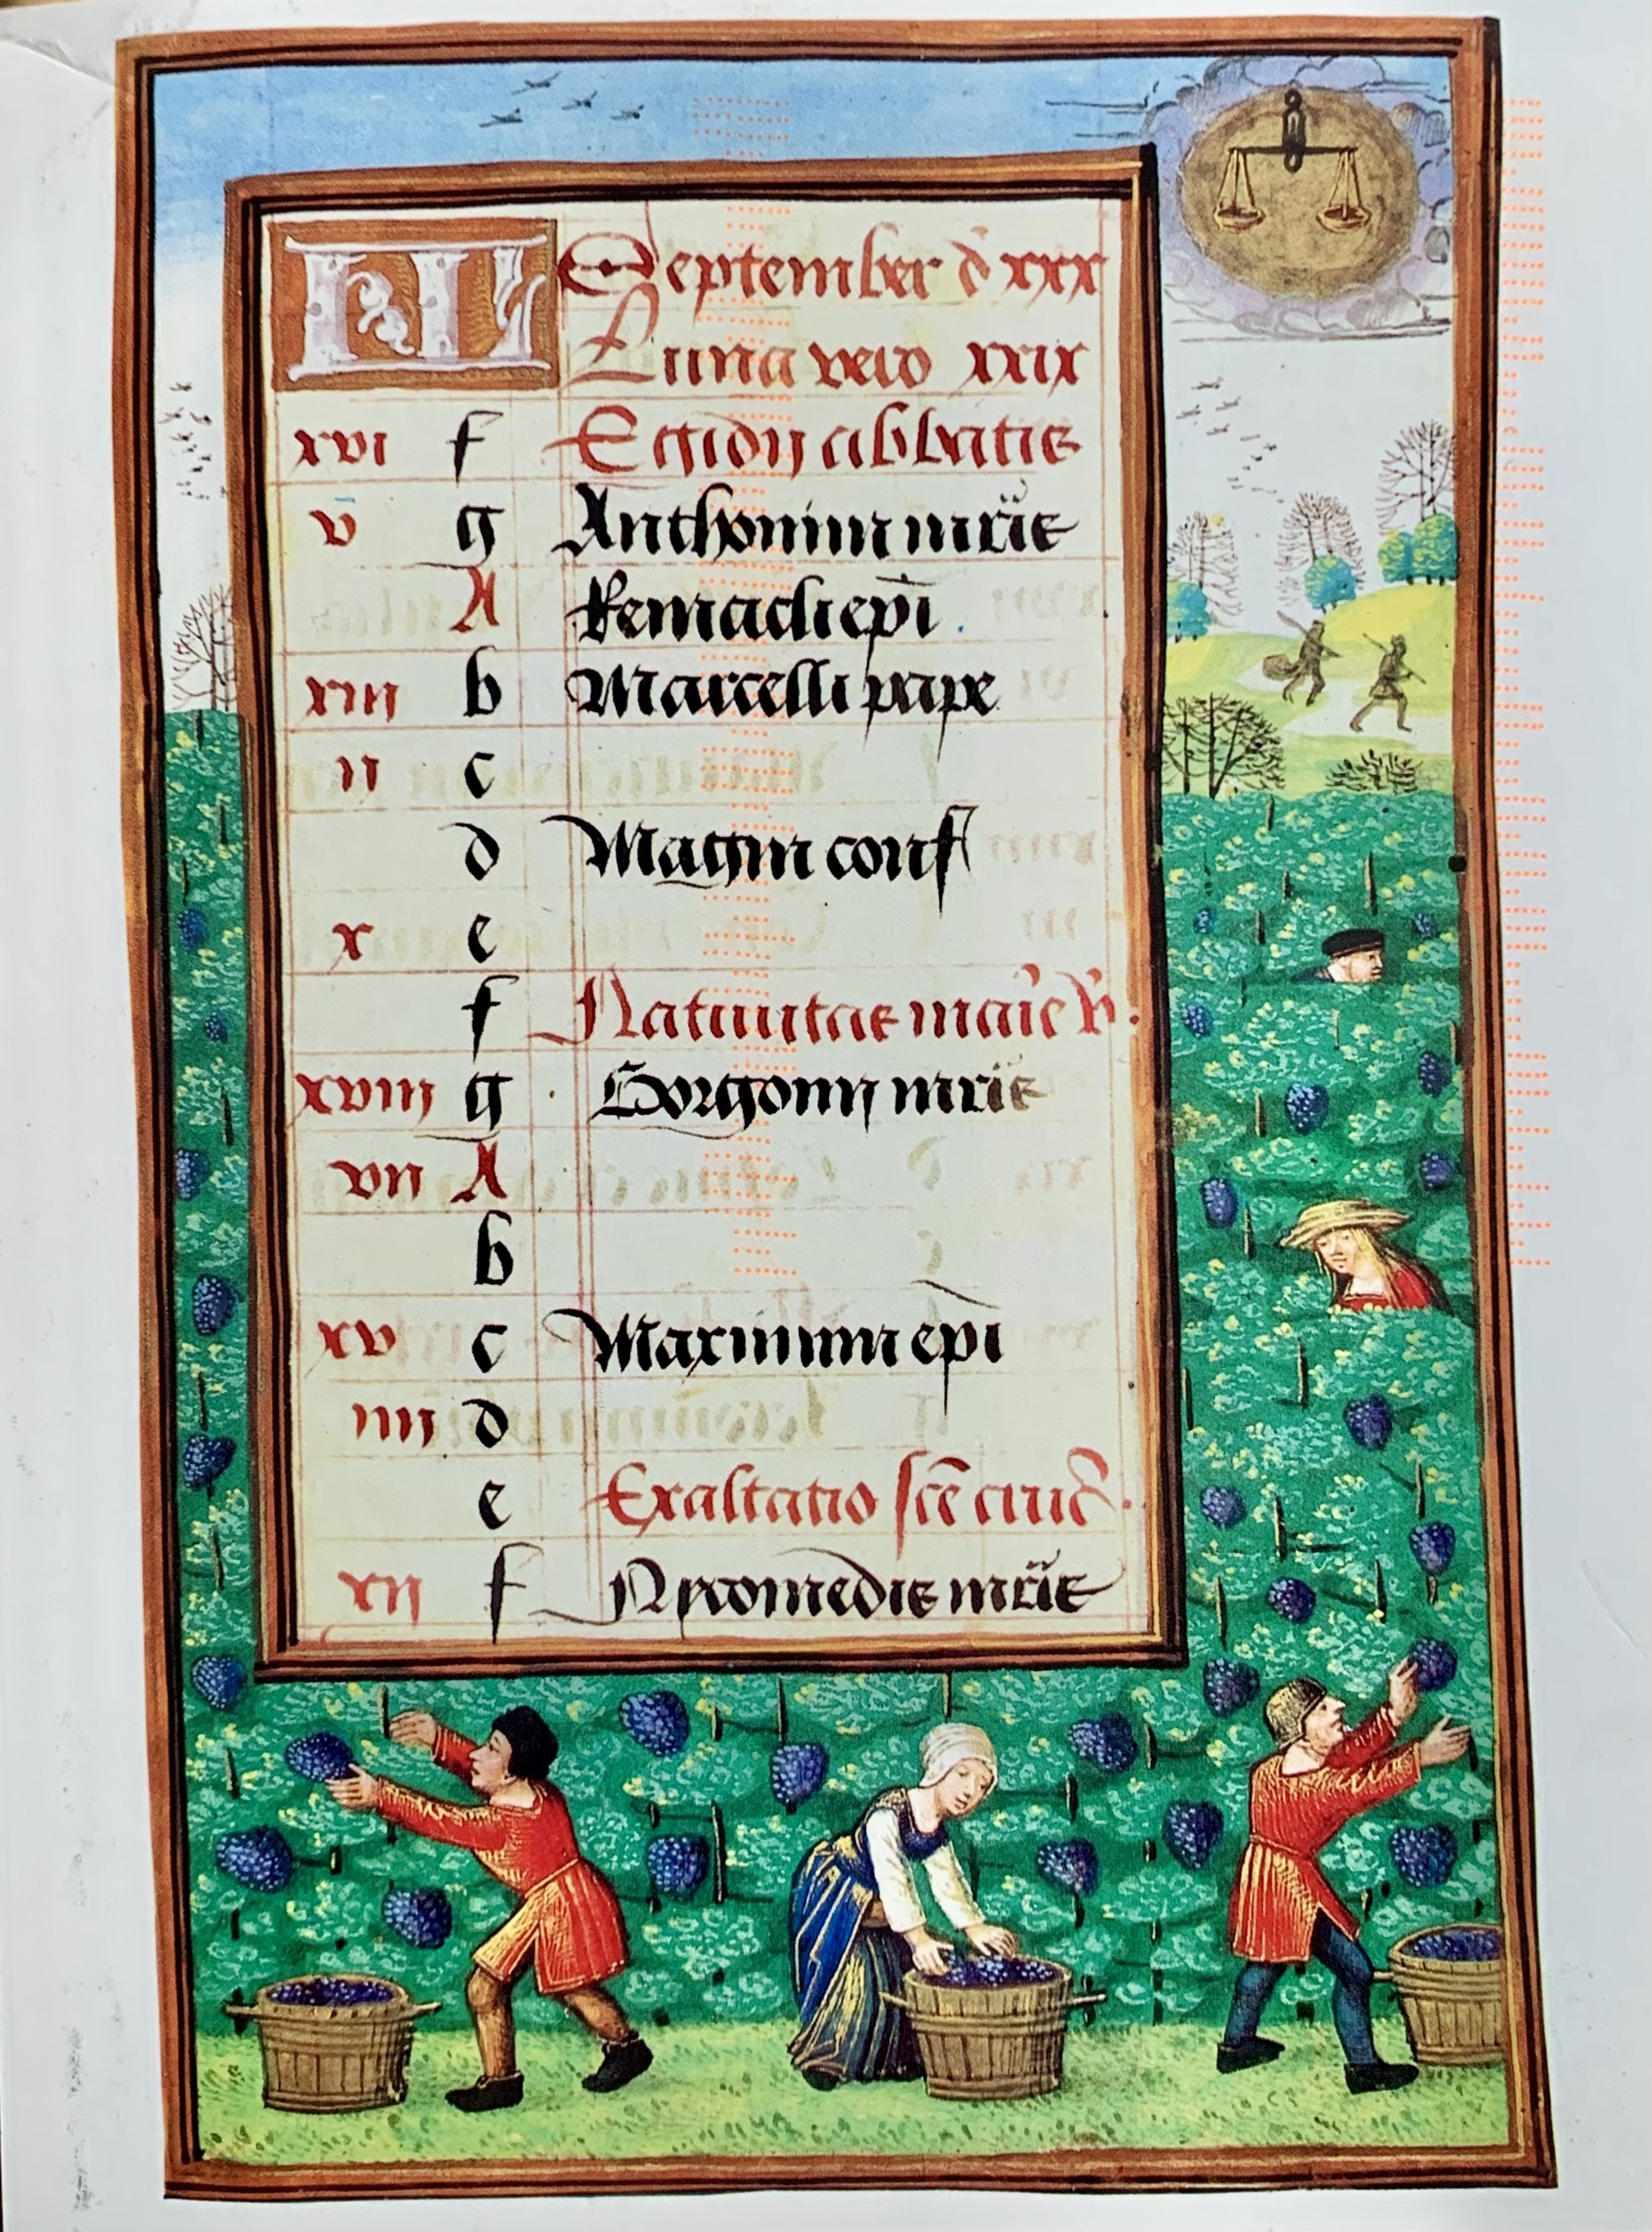 KL September d xxx
Luna vero xxix
xvi f Egidij abbatis
v g Anthonini mris
A Remacli epi
xiii b Marcelli pape
ii c
d Magni conf
x e
f Natiuitas marie v.
xviii g Gorgonij mris
vii A
b
xv c Maximini epi
iiii d
e Exaltatio sce cruc.
xii f Nycomedis mris